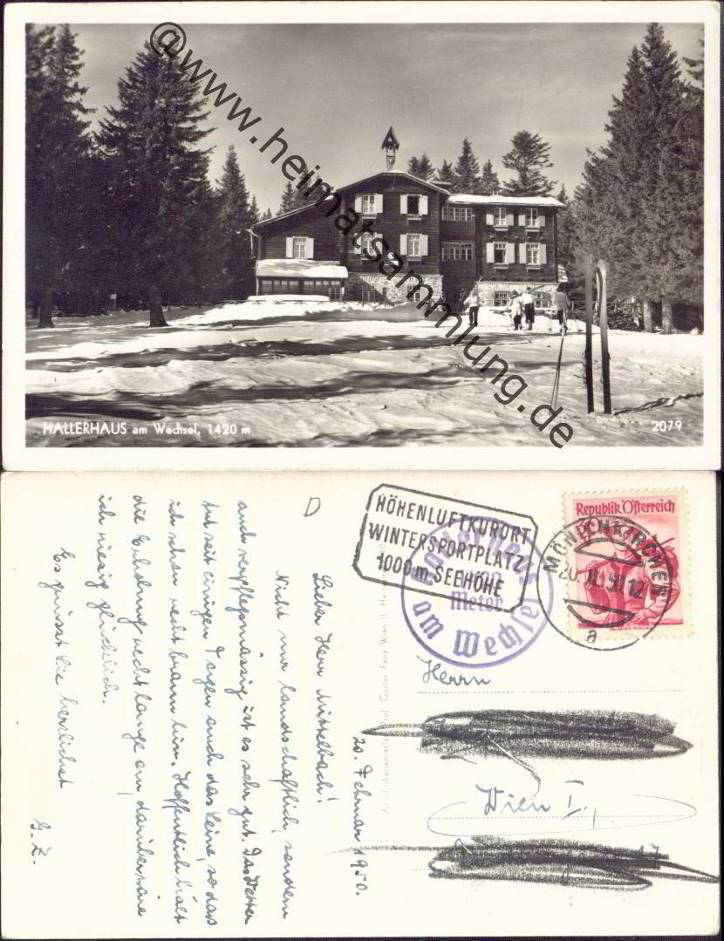 @www.heimatsammlung.de
HALLERHAUS am Wechsel, 1420 m
2079
HÖHENLUFTKURORT
WINTERSPORTPLATZ
1000 m SEEHÖHE
Meter
am Wechsel
Republik Österreich
MÖNICHKIRCHEN
a
Herrn
Wien I.,
20. Februar 1950.
Lieber Herr Mittelbach!
Nicht nur landschaftlich, sondern
auch verpflegsmässig ist es sehr gut. Das Wetter
ist seit einigen Tagen auch das Reine, so daß
ich schon recht braun bin. Hoffentlich hält
die Erholung recht lange an, darüber wäre
ich riesig glücklich.
Es grüsst Sie herzlichst
G. Z.